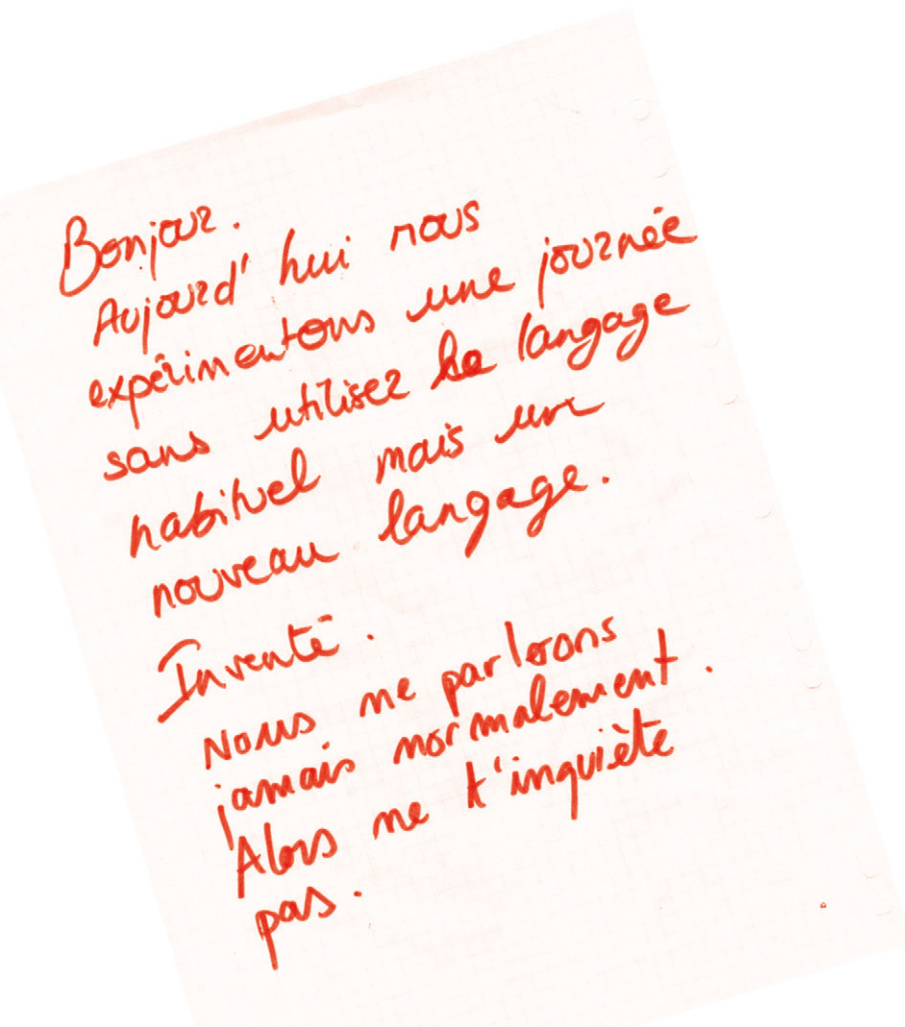 Bonjour.
Aujourd'hui nous
expérimentons une journée
sans utiliser le langage
habituel mais un
nouveau langage.
Inventé.
Nous ne parlerons
jamais normalement.
Alors ne t'inquiète
pas.